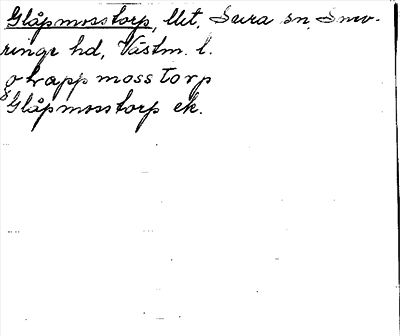 Glåpmosstorp, llht, Sura sn, Snev-
ringe hd, Västm. l.
glapp moss torp
Glåpmosstorp ek.